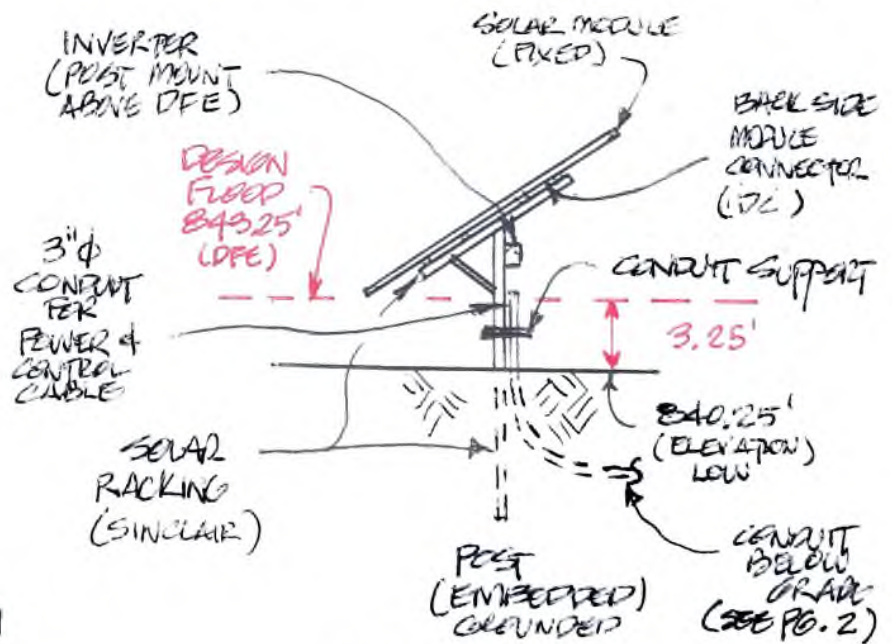 INVERTER
(POST MOUNT
ABOVE DFE)
SOLAR MODULE
(FIXED)
BACK SIDE
MODULE
CONNECTOR
(DC)
DESIGN
FLOOD
843.25'
(DFE)
3"φ
CONDUIT
FOR
POWER &
CONTROL
CABLE
CONDUIT SUPPORT
3.25'
840.25'
(ELEVATION)
LOW
SOLAR
RACKING
(SINCLAIR)
POST
(EMBEDDED)
GROUNDED
CONDUIT
BELOW
GRADE
(SEE PG. 2)